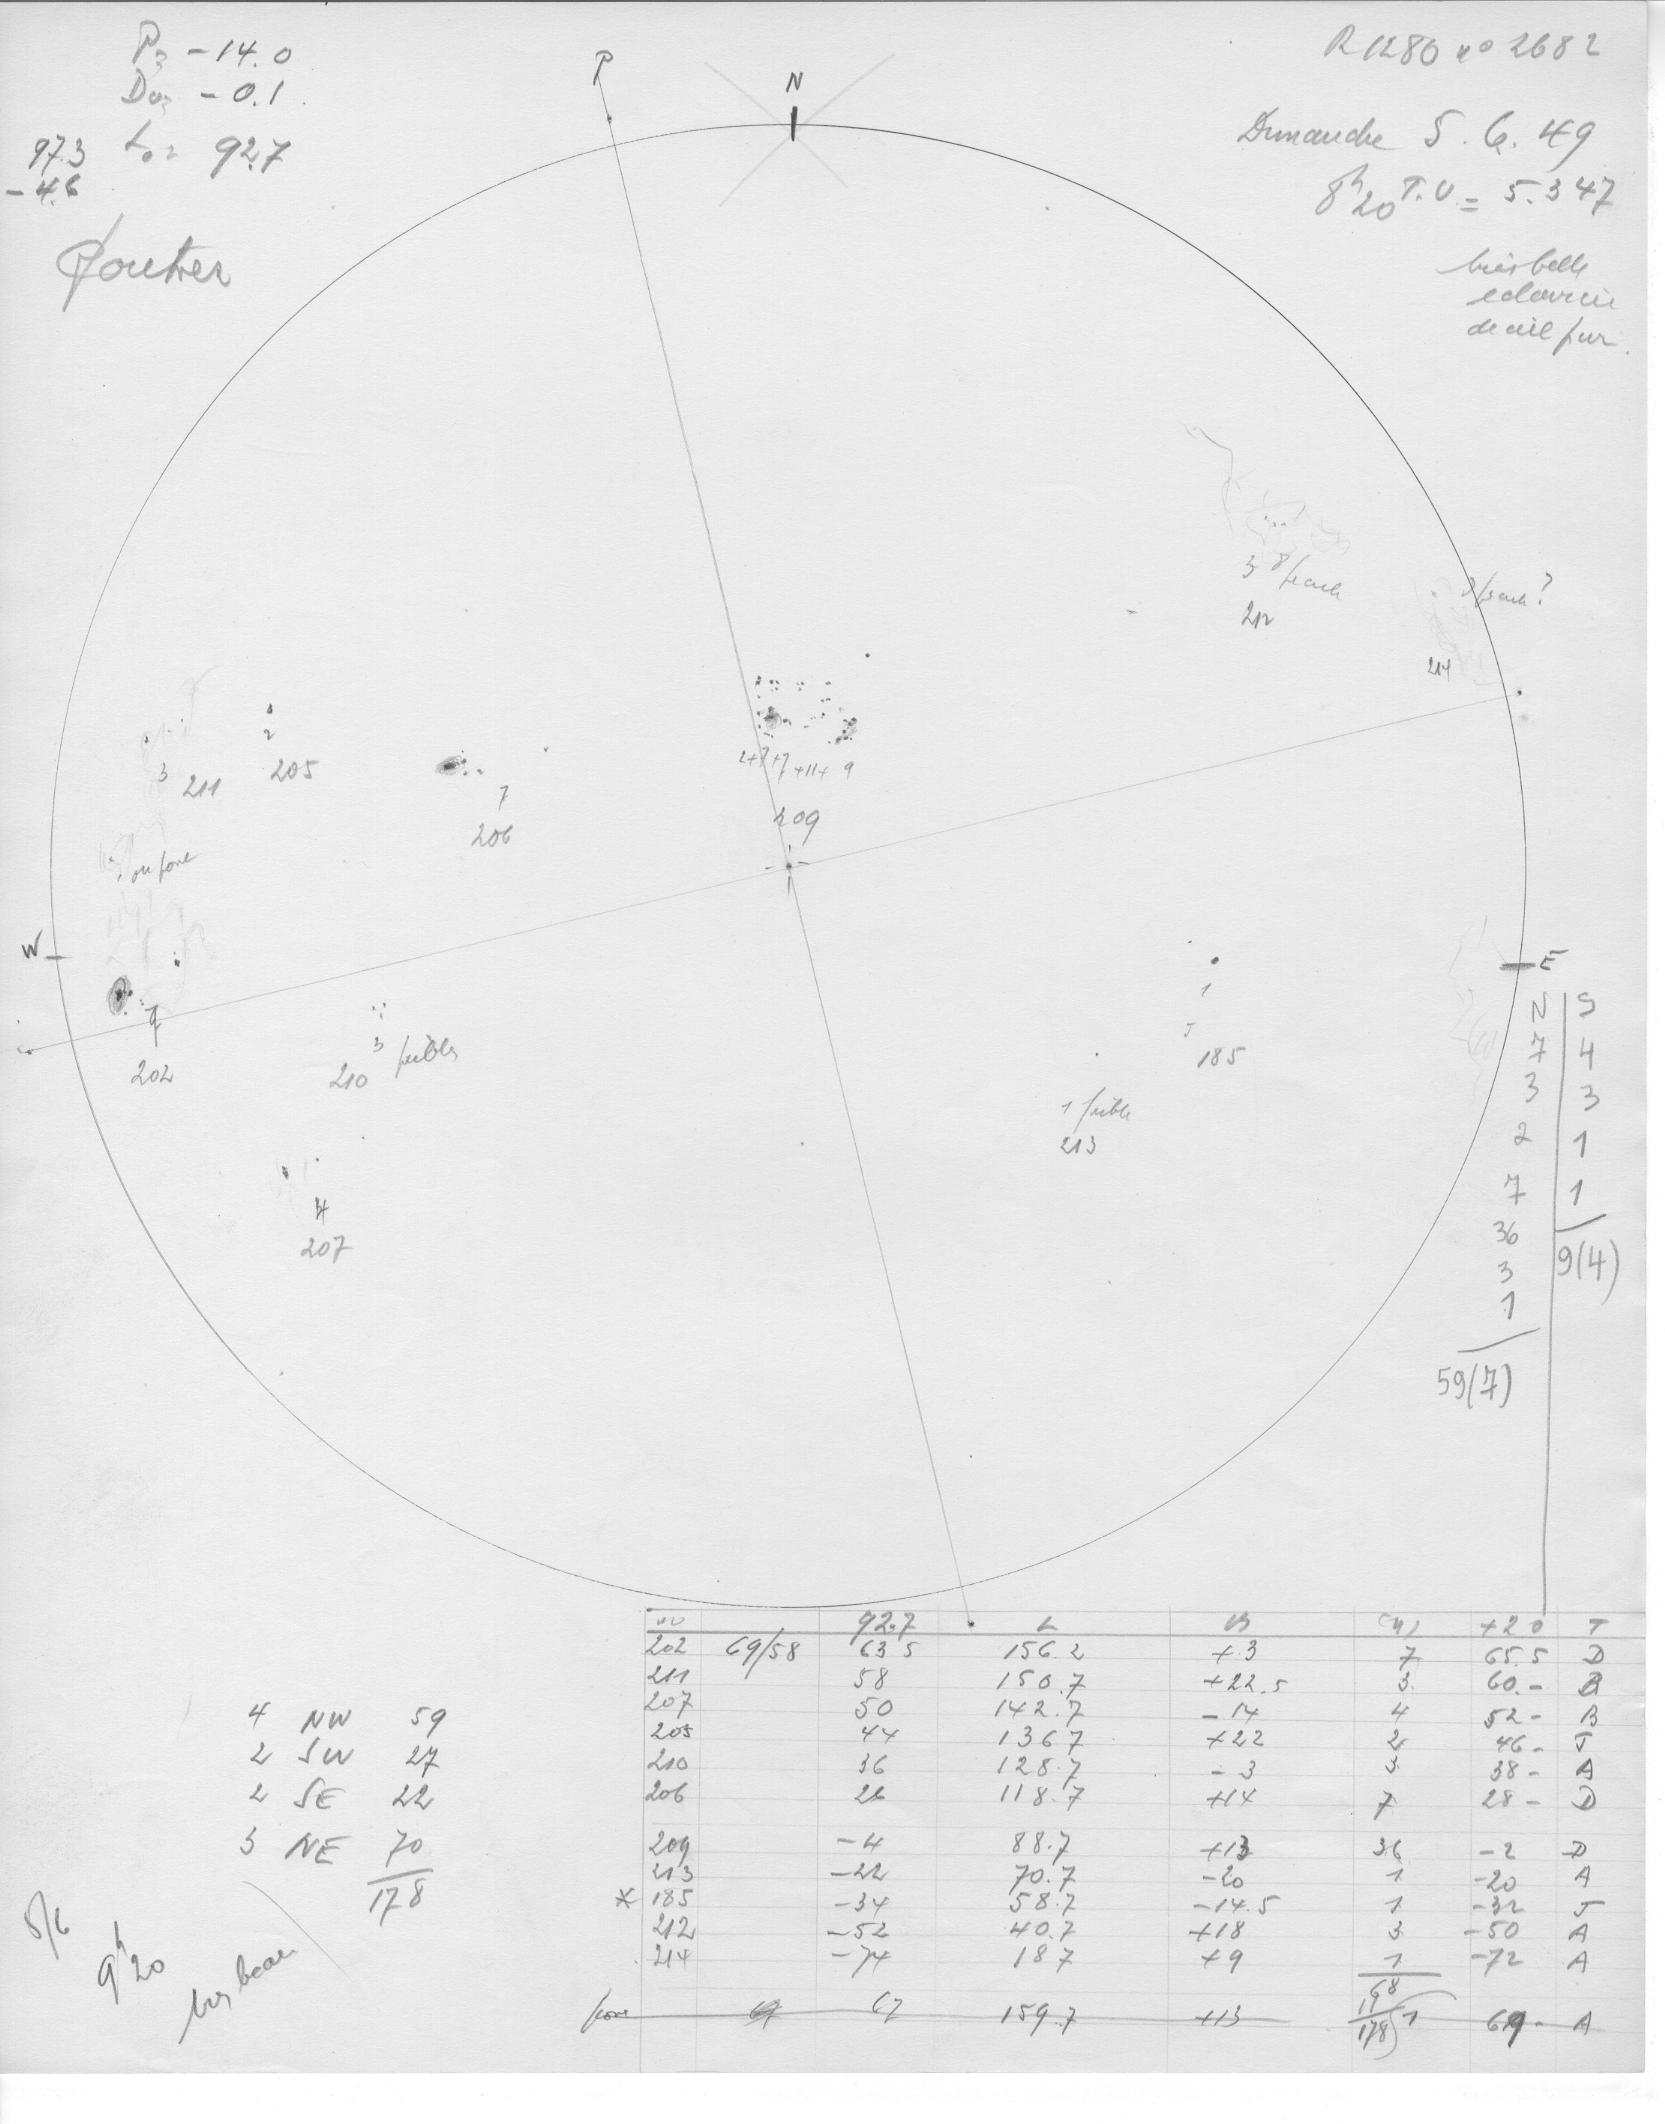 P= -14.0
D0= -0.1
L0= 92.7
97.3
-4.6
P
N
R 1280 no 2682
Dimanche 5.6.49
8h20 T.U. = 5.347
très belle
eclaircie
de ciel pur.
3 8/
212
214
2
205
3
211
7
206
2+7+7+11+9
209
ou pore
W
E
7
202
3 faibles
210
1
J
185
1 faible
213
4
207
N S
7 4
3 3
2 1
7 1
36
3 9(4)
1
59(7)
no 92.7 L B +2.0 T
202 69/58 63.5 156.2 +3 7 65.5 D
211 58 150.7 +22.5 3 60.- B
207 50 142.7 -14 4 52- B
205 44 136.7 +22 2 46- J
210 36 128.7 -3 3 38- A
206 26 118.7 +14 7 28- D
209 -4 88.7 +13 36 -2 D
213 -22 70.7 -20 1 -20 A
* 185 -34 58.7 -14.5 1 -32 J
212 -52 40.7 +18 3 -50 A
214 -74 18.7 +9 1 -72 A
68
pore 67 159.7 +13 1 69- A
178
4 NW 59
2 SW 27
2 SE 22
3 NE 70
178
5/6
9h20
très beau